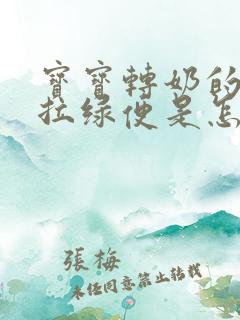 寳寳轉奶的
拉绿便是怎
張梅
未经同意禁止转载